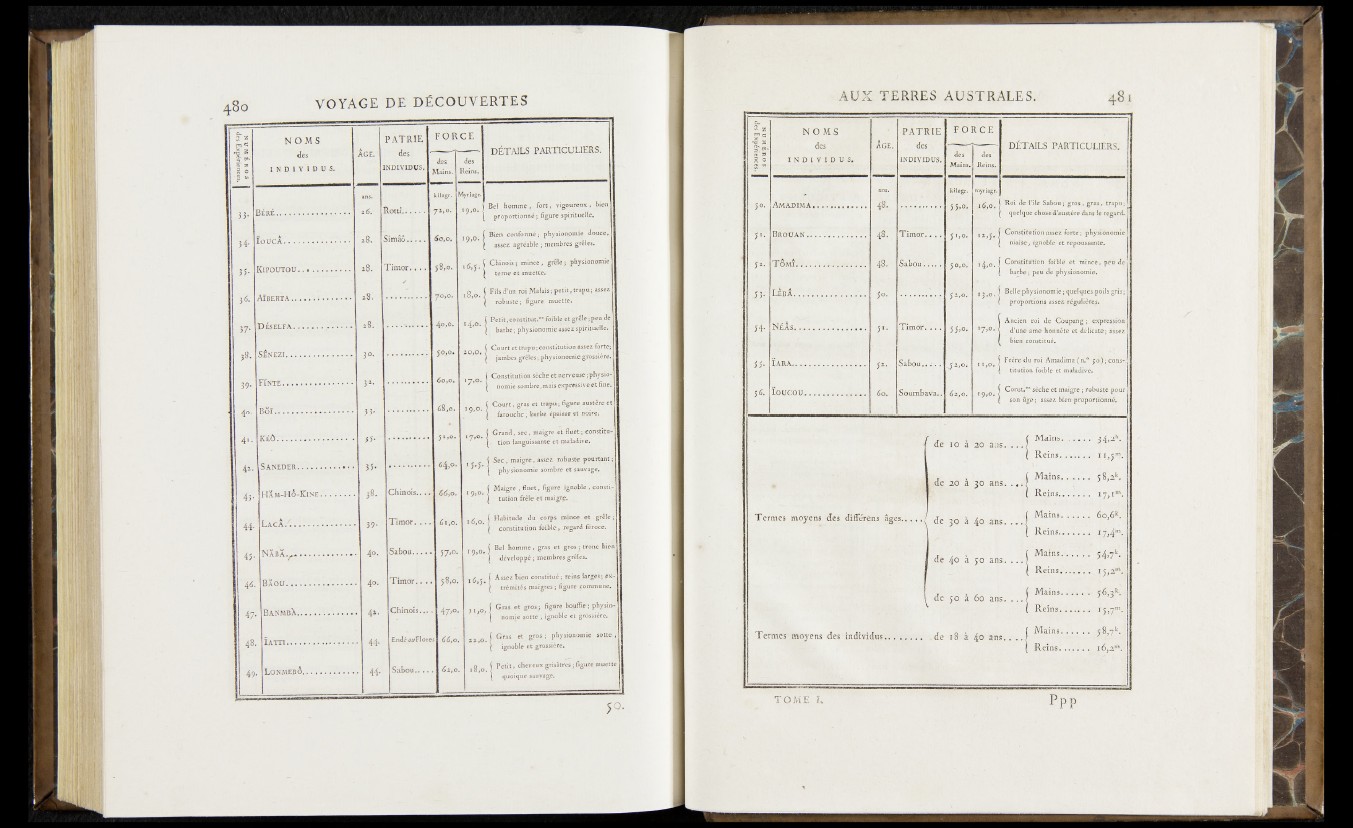 480 VOYAGE DE DÉCOUVERTES
NUMÉROS des Expériences. NOMS des INDIVIDUS. ÂGE. PATRIE des INDIVIDUS. FORCE des Mains. des Reins. DÉTAILS PARTICULIERS.
ans. kilogr. Myriagr.
33. BÉRÉ 26. Rotti 72,0. 19,0. Bel homme, fort, vigoureux, bien
proportionné; figure spirituelle.
34. ÏOUCÂ 28. Simâô 60,0. 19,0. Bien conformé; physionomie douce,
assez agréable; membres grêles.
35. KIPOUTOU 28. Timor 58,0. 16,5. Chinois; mince, grêle; physionomie
terne et muette.
36. AÏBERTA 28. 70,0. 18,0. Fils d'un roi Malais; petit, trapu; assez
robuste; figure muette.
37. DÉSELFA 28. 40,0. 14,0. Petit, constitut.on foible et grêle; peu de
barbe; physionomie assez spirituelle.
38. SÊNEZI 30. 50,0. 20,0. Court et trapu; constitution assez forte;
jambes grêles; physionomie grossière.
39. FÏNTE 32. 60,0. 17,0. Constitution sèche et nerveuse; physio-
nomie sombre, mais expressive et fine.
40. BÔÏ 33. 68,0. 19,0. Court, gras et trapu; figure austère et
farouche; barbe épaisse et noire.
41. KÉÔ 35. 52,0. 17,0. Grand, sec, maigre et fluet; constitu-
tion languissante et maladive.
42. SANEDER 35. 64,0. 15,5. Sec, maigre, assez robuste pourtant;
physionomie sombre et sauvage.
43. HÄM-HÔ-KINE 38. Chinois 66,0. 19,0. Maigre, fluet, figure ignoble, consti-
tution frêle et maigre.
44. LACÂ 39. Timor 61,0. 16,0. Habitude du corps mince et grêle;
constitution foible, regard féroce.
45. NÄBÄ 40. Sabou 57,0. 19,0. Bel homme, gras et gros; tronc bien
développé; membres grêles.
46. BÄOU 40. Timor 58,0. 16,5. Assez bien constitué; reins larges; ex-
trémités maigres; figure commune.
47. BANMBÀ 42. Chinois 47,0. 21,0. Gras et gros; figure bouffie; physio-
nomie sotte, ignoble et grossière.
48. ÏATTI 44. Endé ou Flores 66,0. 22,0. Gras et gros; physionomie sotte,
ignoble et grossière.
49. LONMEBÔ 44. Sabou 62,0. 18,0. Petit, cheveux grisâtres; figure muette
quoique sauvage.
50.
AUX TERRES AUSTRALES. 481
NUMÉROS des Expériences. NOMS des INDIVIDUS. ÂGE. PATRIE des INDIVIDUS. FORCE des Mains. des Reins. DÉTAILS PARTICULIERS.
ans. kilogr. Myriagr.
50. AMADIMA 48. 55,0. 16,0. Roi de l'île Sabou; gros, gras, trapu;
quelque chose d'austère dans le regard.
51. BROUAN 48. Timor 51,0. 12,5. Constitution assez forte; physionomie
niaise, ignoble et repoussante.
52. TÔMÎ 48. Sabou 50,0. 14,0. Constitution foible et mince, peu de
barbe; peu de physionomie.
53. LÉBÂ 50. 52,0. 13,0. Belle physionomie; quelques poils gris;
proportions assez régulières.
54. NÉÂS 51. Timor 55,0. 17,0. Ancien roi de Coupang; expression
d'une ame honnête et delicate; assez
bien constitué.
55. ÏARA 52. Sabou 52,0. 11,0. Frère du roi Amadima (n.° 50); cons-
titution foible et maladive.
56. ÏOUCOU 60. Soumbava 62,0. 19,0. Const.on sèche et maigre; robuste pour
son âge; assez bien proportionné.
Termes moyens des différens âges
de 10 à 20 ans Mains 54,2k.
Reins 11,5m.
de 20 à 30 ans Mains 58,2k.
Reins 17,1m.
de 30 à 40 ans Mains 60,6k.
Reins 17,4m.
de 40 à 50 ans Mains 54,7k.
Reins 15,2m.
de 50 à 60 ans Mains 56,3k.
Reins 15,7m.
Termes moyens des individus de 18 à 40 ans Mains 58,7k.
Reins 16,2m.
TOME I. Ppp